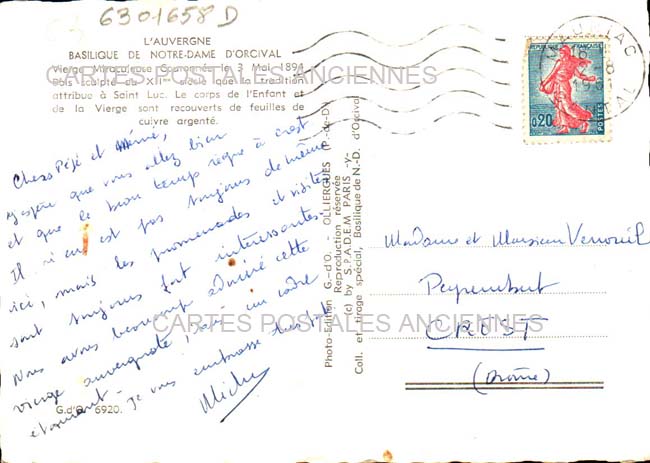 6301658D
L'AUVERGNE
BASILIQUE DE NOTRE-DAME D'ORCIVAL
Vierge Miraculeuse Couronnée le 3 Mai 1894
Bois sculpté du XIIe siècle que la tradition
attribue à Saint Luc. Le corps de l'Enfant et
de la Vierge sont recouverts de feuilles de
cuivre argenté.
CARTES POSTALES ANCIENNES
Chers Pépé et Mémé,
J'espère que vous allez bien
et que le beau temps règne à Crest
Il n'en est pas toujours de même
ici, mais les promenades et visites
sont toujours fort intéressantes.
Nous avons beaucoup admiré cette
vierge auvergnate, dans un cadre
étonnant. Je vous embrasse
G.d'O. 6920.
Photo-Edition G.-d'O. OLLIERGUES (P.-de-D.)
Reproduction réservée
(c) by S.P.A.D.E.M PARIS -y-
Coll. et tirage spécial, Basilique de N.-D. d'Orcival
REPUBLIQUE FRANÇAISE
0,20
POSTES
Madame et Monsieur
CREST
(Drôme)
CARTES POSTALES ANCIENNES